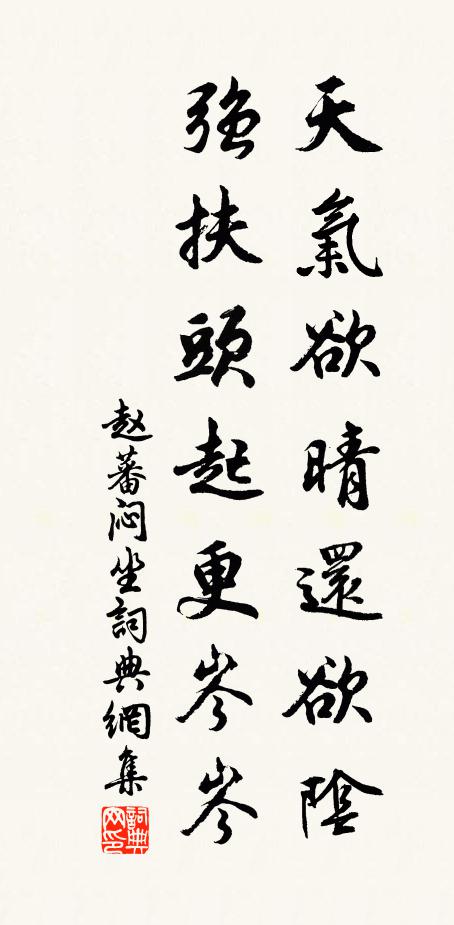 天氣欲晴還欲陰
強扶頭起更岑岑
赵蕃闷坐詞典網集
詞典网印